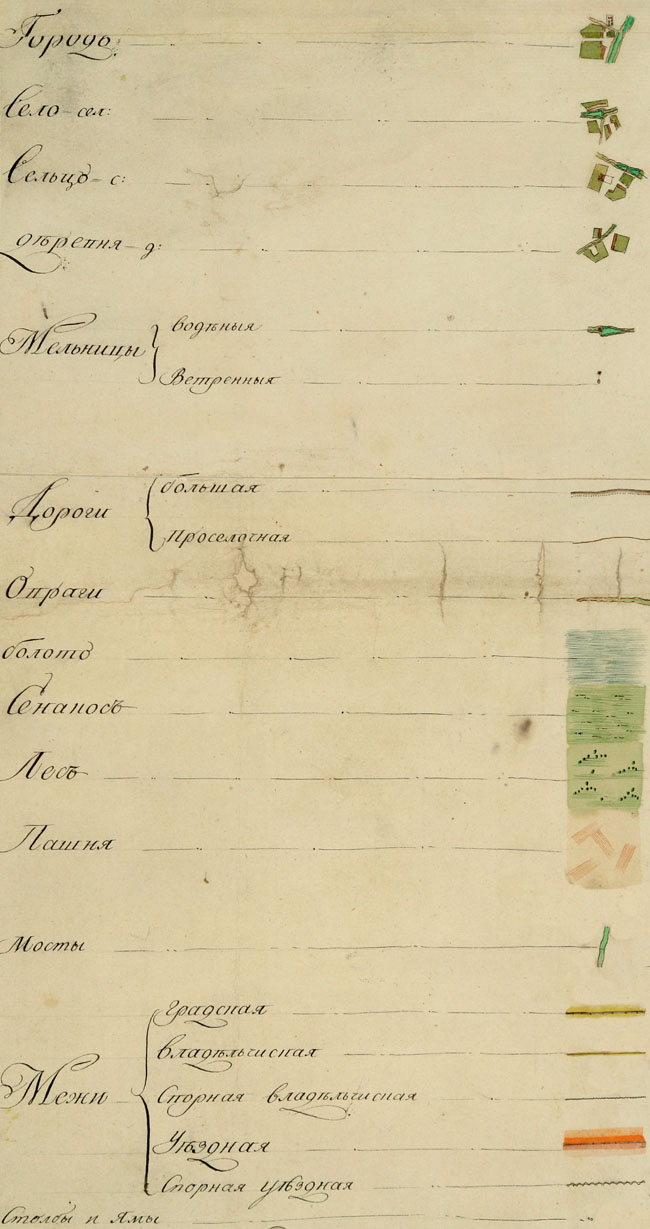 Городъ
Село — сел:
Сельцо — с:
деревня — д:
Мельницы
водяныя
Ветренныя
Дороги
большая
Проселочная
Овраги
болото
Сенакосъ
Лесъ
Пашня
Мосты
Межи
градская
владѣльческая
Спорная владѣльческая
Уѣздная
Спорная уѣздная
Столбы и Ямы